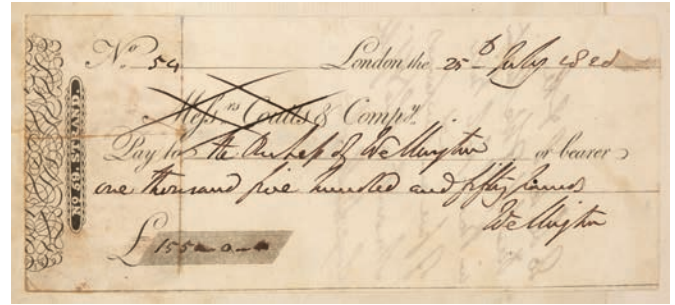 No 54 London the 25th July 1821
Messrs Coutts & Compy
Pay to the Duchess of Wellington or bearer
one thousand five hundred and fifty pounds
Wellington
£ 1550-0-0
No 59, STRAND.